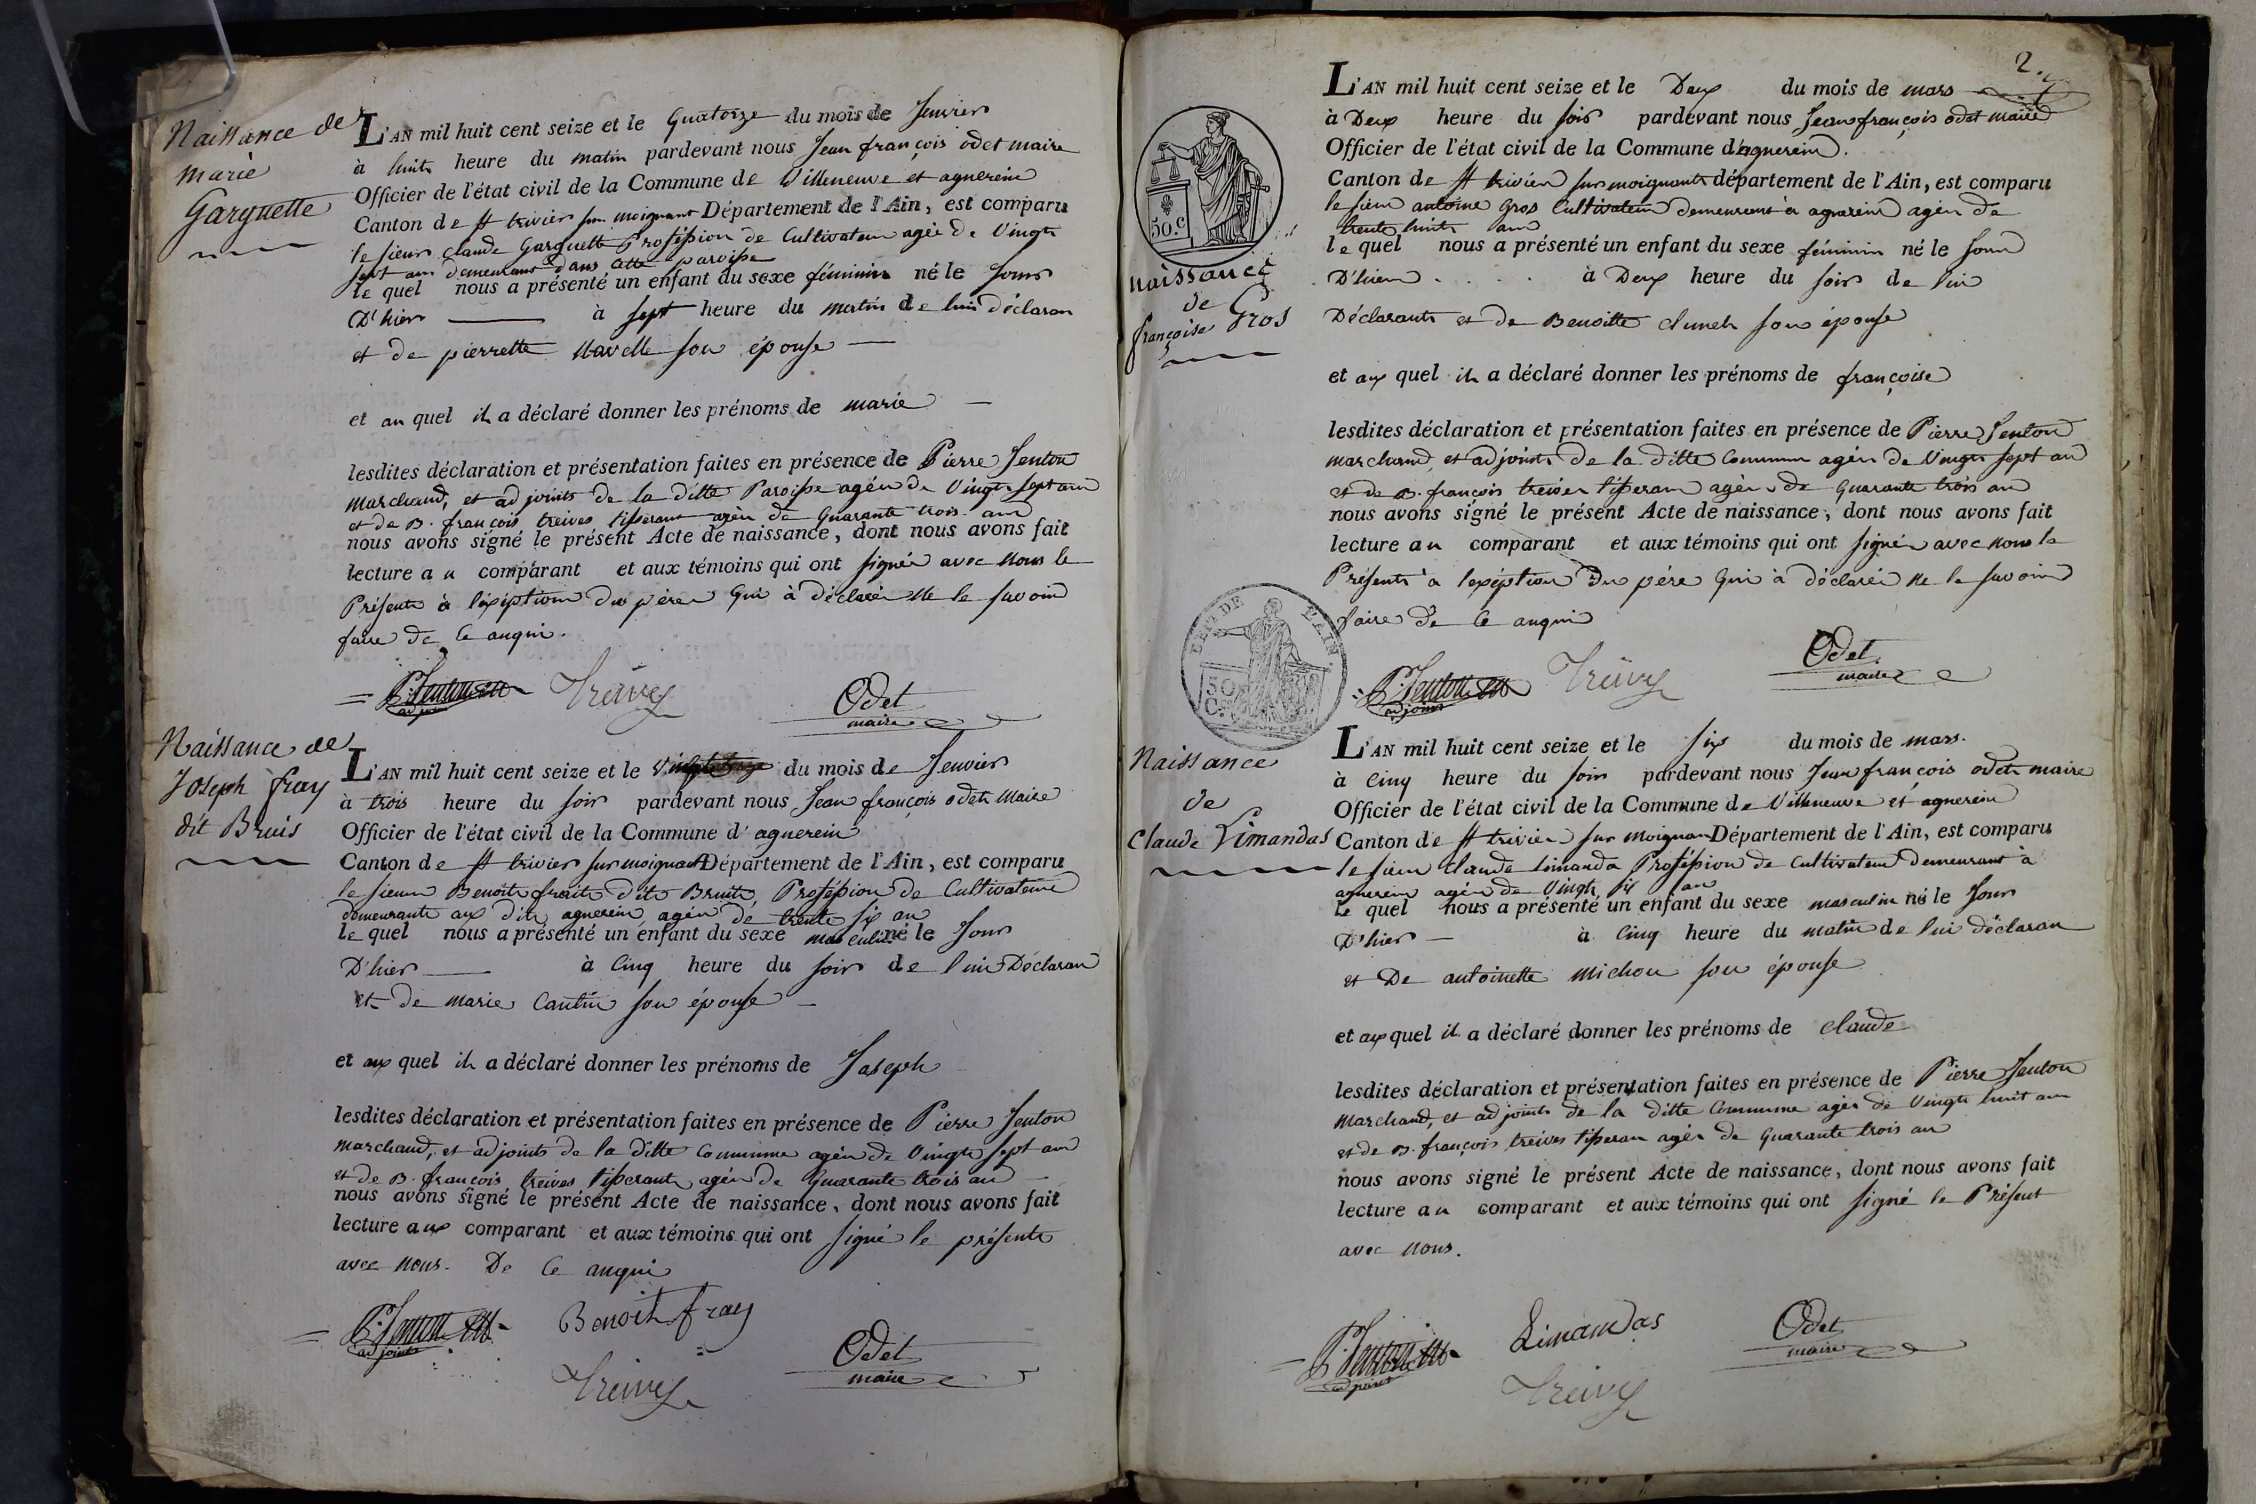 Naissance de
Marie
Garguette
L'AN mil huit cent seize et le Quatorze du mois de Jenvier
à huit heure du matin pardevant nous Jean françois odet maire
Officier de l'état civil de la Commune de Villeneuve et agnerein
Canton de St trivier sur moignant Département de l'Ain, est comparu
le sieur Claude Garguette Proféssion de Cultivateur agée de Vingt
sept ans demeurant dans cette paroisse
le quel nous a présenté un enfant du sexe féminin né le jour
D'hier à sept heure du matin de lui déclaran
et de pierrette Navelle son épouse
et au quel il a déclaré donner les prénoms de marie
lesdites déclaration et présentation faites en présence de Pierre Jenton
Marchand, et adjoint de la ditte Paroisse agée de Vingt sept an
et de B. françois treives tisserant agée de Quarante trois an
nous avons signé le présent Acte de naissance, dont nous avons fait
lecture au comparant et aux témoins qui ont signée avec nous le
Présente à l'exeption du père Qui à déclarée ne le savoir
faire de ce anquis.
P. Jenton
adjoint
Treives
Odet
maire
Naissance de
Joseph fray
dit Bruis
L'AN mil huit cent seize et le du mois de Jenvier
à trois heure du soir pardevant nous Jean françois odet Maire
Officier de l'état civil de la Commune d'agnerein
Canton de St trivier sur moignant Département de l'Ain, est comparu
le sieur Benoit frait dit Bruit, Proféssion de Cultivateur
demeurante aux dit agnerein, agée de trente six an
le quel nous a présenté un enfant du sexe masculin né le Jour
D'hier à Cinq heure du soir de lui Déclaran
et de marie Cantin son épouse
et aux quel il a déclaré donner les prénoms de Joseph
lesdites déclaration et présentation faites en présence de Pierre Jenton
Marchand, et adjoint de la ditte Commune agée de Vingt sept an
et de B. françois treives tisserant agée de Quarante trois an
nous avons signé le présent Acte de naissance, dont nous avons fait
lecture aux comparant et aux témoins qui ont signé le présente
avec nous. De ce anquis
P. Jenton
adjoint
Benoit fray
Treives
Odet
maire
2.
50.C
naissance
de
françoise Gros
L'AN mil huit cent seize et le Deux du mois de mars
à Deux heure du soir pardevant nous Jean françois odet maire
Officier de l'état civil de la Commune d'agnerein.
Canton de St trivier sur moignant département de l'Ain, est comparu
le sieur antoine Gros Cultivateur demeurant à agnerein agée de
trente huit an
le quel nous a présenté un enfant du sexe féminin né le Jour
D'hier à Deux heure du soir de lui
Déclarant et de Benoitte clunet son épouse
et aux quel il a déclaré donner les prénoms de françoise
lesdites déclaration et présentation faites en présence de Pierre Jenton
marchand, et adjoint de la ditte Commune agée de Vingt sept an
et de B. françois treives tisseran agée de Quarante trois an
nous avons signé le présent Acte de naissance, dont nous avons fait
lecture au comparant et aux témoins qui ont signée avec nous le
Présente à l'exéption du pére Qui à déclarée ne le savoir
faire de ce anquis
DEP.T DE L'AIN
50
C.
P. Jenton
adjoint
Treives
Odet
maire
Naissance
de
Claude Limandas
L'AN mil huit cent seize et le six du mois de mars.
à Cinq heure du soir pardevant nous Jean françois odet maire
Officier de l'état civil de la Commune de Villeneuve et agnerein
Canton de St trivier sur moignan Département de l'Ain, est comparu
le sieur Claude Limanda Proféssion de Cultivateur demeurant à
agnerein agée de Vingt six an
le quel nous a présenté un enfant du sexe masculin né le Jour
D'hier à Cinq heure du matin de lui déclaran
et De antoinette Michon son épouse
et aux quel il a déclaré donner les prénoms de Claude
lesdites déclaration et présentation faites en présence de Pierre Jenton
Marchand, et adjoint de la ditte Commune agée de Vingt huit an
et de B. françois treives tisseran agée de Quarante trois an
nous avons signé le présent Acte de naissance, dont nous avons fait
lecture au comparant et aux témoins qui ont signé le Présent
avec nous.
P. Jenton
adjoint
Limandas
Treives
Odet
maire